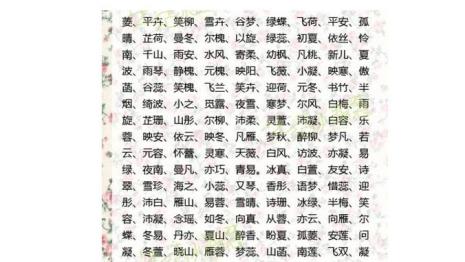 菱、平卉、笑柳、雪卉、谷梦、绿蝶、飞荷、平安、孤
晴、芷荷、曼冬、尔槐、以旋、绿蕊、初夏、依丝、怜
南、千山、雨安、水风、寄柔、幼枫、凡桃、新儿、夏
波、雨琴、静槐、元槐、映阳、飞薇、小凝、映寒、傲
菡、谷蕊、笑槐、飞兰、笑卉、迎荷、元冬、书竹、半
烟、绮波、小之、觅露、夜雪、寒梦、尔风、白梅、雨
旋、芷珊、山彤、尔柳、沛柔、灵萱、沛凝、白容、乐
蓉、映安、依云、映冬、凡雁、梦秋、醉柳、梦凡、若
云、元容、怀蕾、灵寒、天薇、白风、访波、亦凝、易
绿、夜南、曼凡、亦巧、青易。冰真、白萱、友安、诗
翠、雪珍、海之、小蕊、又琴、香彤、语梦、惜蕊、迎
彤、沛白、雁山、易蓉、雪晴、诗珊、冰绿、半梅、笑
容、沛凝、念瑶、如冬、向真、从蓉、亦云、向雁、尔
蝶、冬易、丹亦、夏山、醉香、盼夏、孤菱、安莲、问
凝、冬萱、晓山、雁蓉、梦蕊、山菡、南莲、飞双、凝